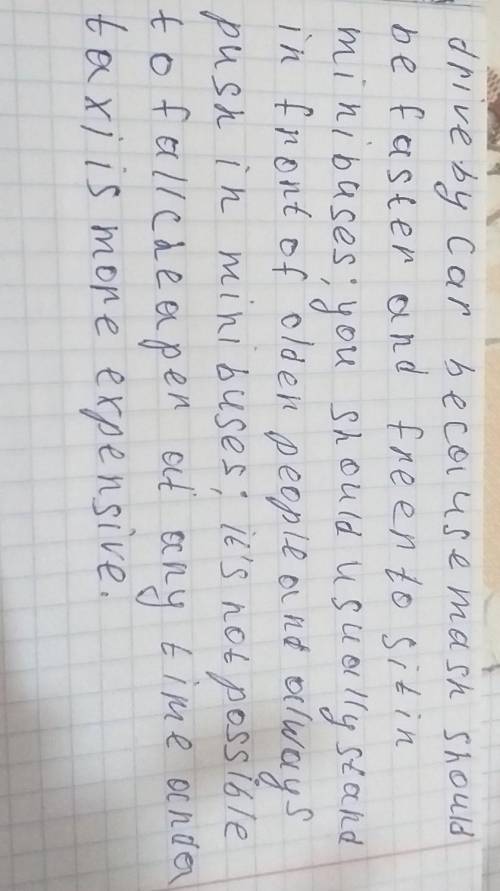 drive by car becouse mash should
be faster and freer to sit in
minibuses; you should usually stand
in front of older people and always
push in minibuses; it's not possible
to fall cheaper at any time and a
taxi is more expensive.